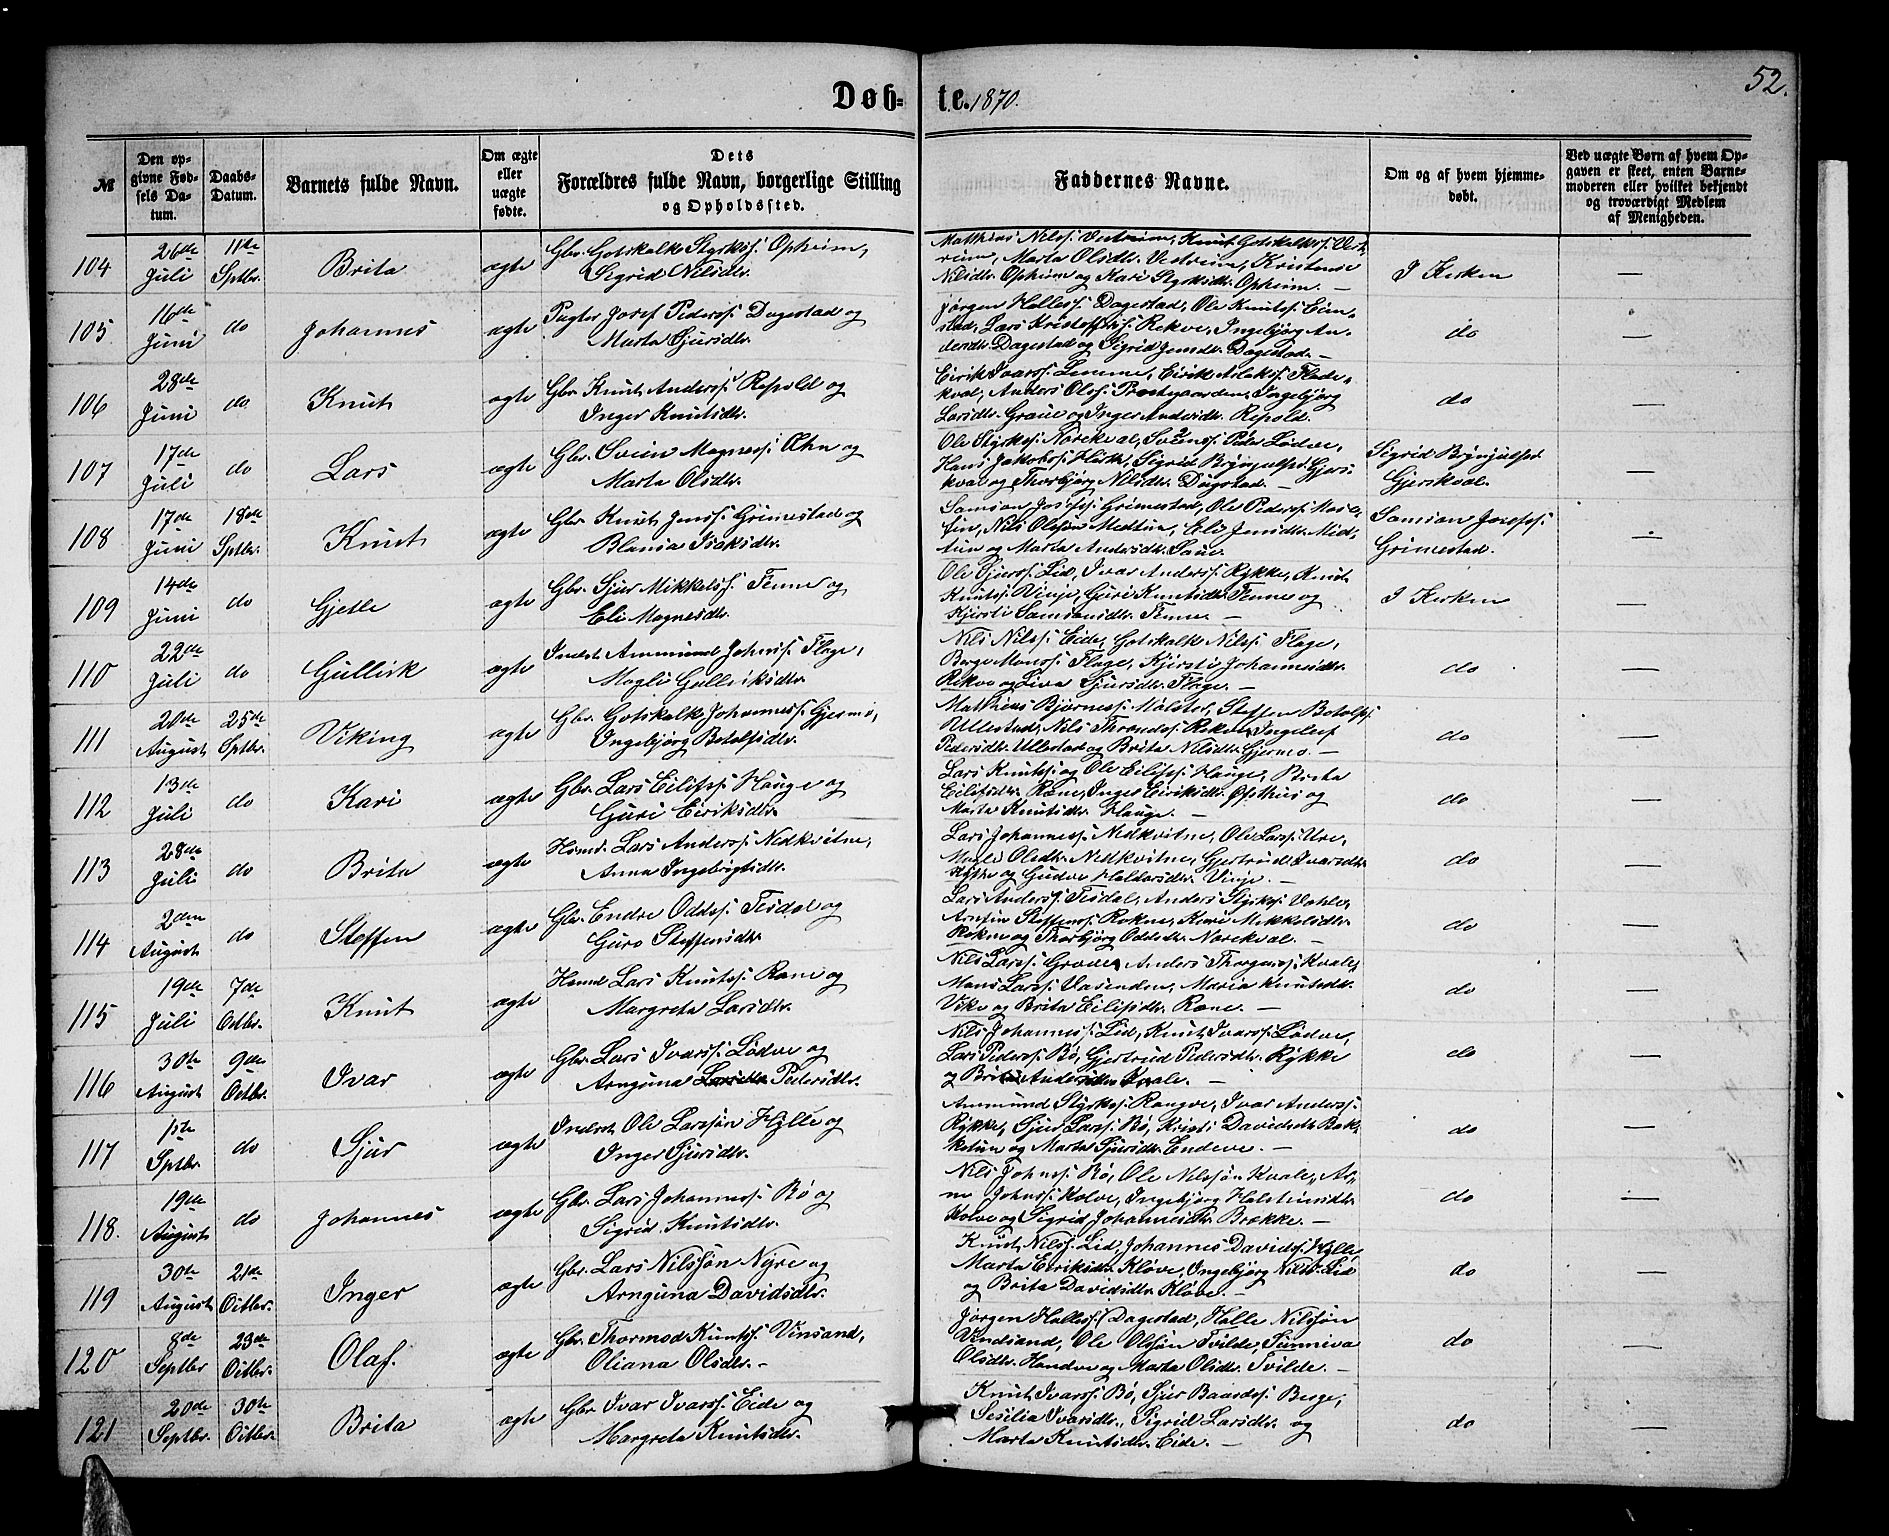 52.
Døb-
te. 1870.
№
Den op-
givne Fød-
sels Da-
tum.
Daabs-
Datum.
Barnets fulde Navn.
Om ægte
eller
uægte
fødte.
Dets
Forældres fulde Navn, borgerlige Stilling
og Opholdssted.
Faddernes Navne.
Om og af hvem hjemme-
døbt.
Ved uægte Børn af hvem Op-
gaven er skeet, enten Barne-
moderen eller hvilket bekjendt
og troværdigt Medlem
af Menigheden.
104
26de
Juli
11te
Sptbr.
Brita
ægte
Gbr. Gotskalk Styrkss. Opheim,
Sigrid Nilsdtr.
Matthias Nilss. Vestreim, Knut Gotskalkss. Vest-
reim, Marta Olsdtr. Vestreim, Kristense
Nilsdtr. Opheim og Kari Styrksdtr. Opheim. —
I Kirken
—
105
16de
Juni
do
Johannes
ægte
Pagter Josef Pederss. Dagestad og
Marta Sjursdtr.
Jørgen Halless. Dagestad, Ole Knutss. Ein-
stad, Lars Kristoffss. Rekve, Ingebjørg An-
dersdtr. Dagestad og Sigrid Jensdtr. Dagestad. —
do
—
106
28de
Juni
do
Knut
ægte
Gbr. Knut Anderss. Repold og
Inger Knutsdtr.
Eirik Ivarss. Lemme, Eirik Aslakss. Flade-
kval, Anders Olss. Prestgaarden, Ingebjørg
Larsdtr. Graue og Inger Andersdtr. Repold.
do
—
107
17de
Juli
do
Lars
ægte
Gbr. Svein Magness. Æhn og
Marta Olsdtr.
Ole Styrkss. Norekval, Sveinss. Peder Lødve,
Hans Jakobss. Hæth, Sigrid Brynjulfsd. Gjers-
kval og Thorbjørg Nilsdtr. Dugstad. —
Sigrid Brynjulfsd.
Gjerskval.
—
108
17de
Juni
18de
Sptbr.
Knut
ægte
Gbr. Knut Jenss. Grimestad og
Blansa Isaksdtr.
Samson Josefss. Grimestad, Ole Pederss. Mos-
tun, Nils Olsson Medtun, Eli Jensdtr. Mid-
tun og Marta Andersdtr. Saue.
Samson Josefss.
Grimestad.
—
109
14de
Juni
do
Gjetle
ægte
Gbr. Sjur Mikkelss. Tenne og
Eli Magnesdtr.
Ole Sjurss. Lid, Ivar Anderss. Rykke, Knut
Knutss. Vinje, Guri Knutsdtr. Tenne og
Kjersti Samsonsdtr. Tenne. —
I Kirken
—
110
22de
Juli
do
Gullisik
ægte
Inderst Ammund Johnss. Flage,
Magli Gulleiksdtr.
Nils Nilss. Eide, Gotskalk Nilss. Flage,
Børge Monss. Flage, Kjersti Johannesdtr.
Rekve og Liva Sjursdtr. Flage. —
do
—
111
20de
August
25de
Sptbr.
Viking
ægte
Gbr. Gotskalk Johanness. Gjermo,
Ingebjørg Botolfsdtr.
Mathias Bjørness. Mølstad, Steffen Botolfs.
Ullestad, Nils Throndss. Rekve, Ingeleif
Pedersdtr. Ullestad og Brita Nilsdtr. Gjermo. —
do
—
112
13de
Juli
do
Kari
ægte
Gbr. Lars Eilifss. Hauge og
Guri Eiriksdtr.
Lars Knutss. og Ole Eilifss. Hauge, Brita
Eilifsdtr. Rene, Inger Eiriksdtr. Opthus og
Marta Knutsdtr. Hauge. —
do
—
113
28de
Juli
do
Brita
ægte
Husmd. Lars Anderss. Nedkvitne,
Anna Ingebrigtsdtr.
Lars Johanness. Nedkvitne, Ole Larss. Ure,
Magli Olsdtr. Nedkvitne, Gjertrud Ivarsdtr.
Hæthe og Gudve Haldorsdtr. Vinje. —
do
—
114
2den
August
do
Steffen
ægte
Gbr. Endre Oddss. Tesdal og
Guro Steffensdtr.
Lars Anderss. Tesdal, Anders Styrkss. Væhle,
Arnfin Steffenss. Rokne, Kari Mikkelsdtr.
Rokne og Thorbjørg Oddsdtr. Norekval. —
do
—
115
19de
Juli
7de
Octbr.
Knut
ægte
Husmd Lars Knutss. Rene og
Margreta Larsdtr.
Nils Larss. Grove, Anders Thorgerss. Kvale,
Mons Larss. Vasenden, Maria Knutsdtr.
Vike og Brita Eilifsdtr. Rene. —
do
—
116
30te
August
9de
Octbr.
Ivar
ægte
Gbr. Lars Ivarss. Lødve og
Arnguna Larsdtr. Pedersdtr.
Nils Johanness. Lid, Knut Ivarss. Lødve,
Lars Pederss. Bø, Gjertrud Pedersdtr. Rykke
og Brita Andersdtr. Kvale. —
do
—
117
1ste
Sptbr.
do
Sjur
ægte
Inderst Ole Larsson Hylle og
Inger Sjursdtr.
Ammund Styrkss. Rongve, Ivar Anderss.
Rykke, Sjur Larss. Bø, Kristi Davidsdtr. Bak-
ketun og Marta Sjursdtr. Endeve. —
do
—
118.
19de
August
do
Johannes
ægte
Gbr. Lars Johanness. Bø og
Sigrid Knutsdtr.
Nils Johnss. Bø, Ole Nilssøn Kvale, Ar-
ne Johnss. Kolve, Ingebjørg Halsteinsdtr.
Kolve og Sigrid Johannesdtr. Brække. —
do
—
119
30te
August
21de
Octbr.
Inger
ægte
Gbr. Lars Nilssøn Nyre og
Arnguna Davidsdtr.
Knut Nilss. Lid, Johannes Davidss. Hylle,
Marta Eiriksdtr. Kløve, Ingebjørg Nilsd. Lid
og Brita Davidsdtr. Kløve. —
do
—
120
8de
Septbr
23de
Octbr.
Olaf.
ægte
Gbr. Thormod Knutss. Vinsand,
Oliana Olsdtr. –
Jørgen Halless. Dagestad, Halle Nilssøn
Vindsand, Ole Olssøn Tvilde, Sunniva
Olsdtr. Handve og Marta Olsdtr. Tvilde. —
do
—
121
20de
Septbr.
30te
Octbr.
Brita
ægte
Gbr Ivar Ivarss. Eide og
Margreta Knutsdtr.
Knut Ivarss. Bø, Sjur Baardss. Berge,
Sesilia Ivarsdtr., Sigrid Larsdtr. og
Marta Knutsdtr. Eide. —
do
—